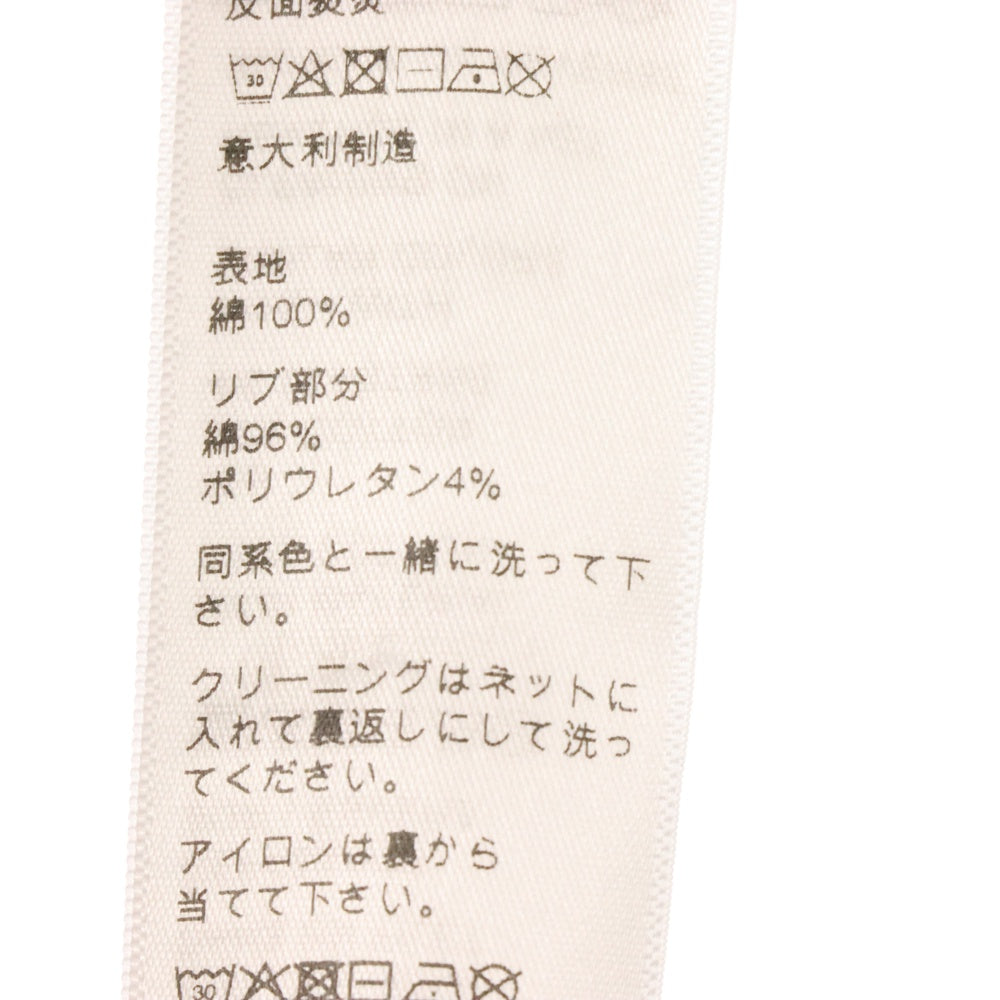 反面熨烫
30
意大利制造
表地
綿100%
リブ部分
綿96%
ポリウレタン4%
同系色と一緒に洗って下
さい。
クリーニングはネットに
入れて裏返しにして洗っ
てください。
アイロンは裏から
当てて下さい。
30